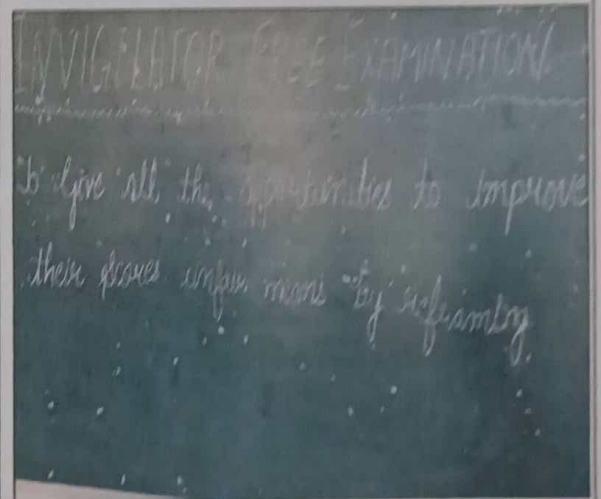 INVIGELATOR FREE EXAMINATION
to give all the oportunities to improve
their scores unfair means by